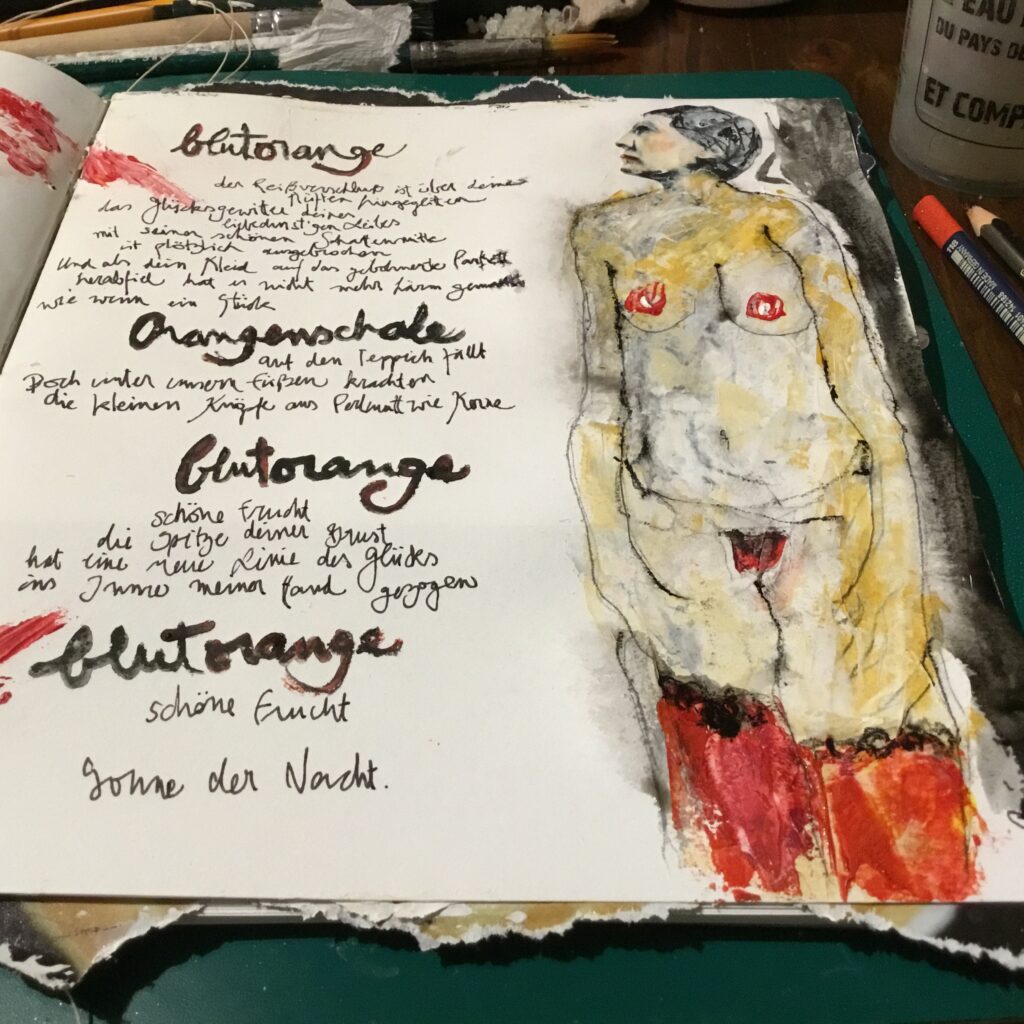 blutorange
der Reißverschluß ist über deine
Hüften hinweggeglitten
das Glücksgewitter deines
liebedunstigen Leibes
mit seiner schönen Schattenmitte
ist plötzlich ausgebrochen
Und als dein Kleid auf das gebohnerte Parkett
herabfiel hat es nicht mehr Lärm gemacht
wie wenn ein Stück
Orangenschale
auf den Teppich fällt
Doch unter unsern Füßen krachten
die kleinen Knöpfe aus Perlmutt wie Kerne
blutorange
schöne Frucht
die Spitze deiner Brust
hat eine neue Linie des Glücks
ins Innre meiner Hand gezogen
blutorange
schöne Frucht
Sonne der Nacht.
EAU
DU PAYS DE
ET COMP
MADE IN GERMANY